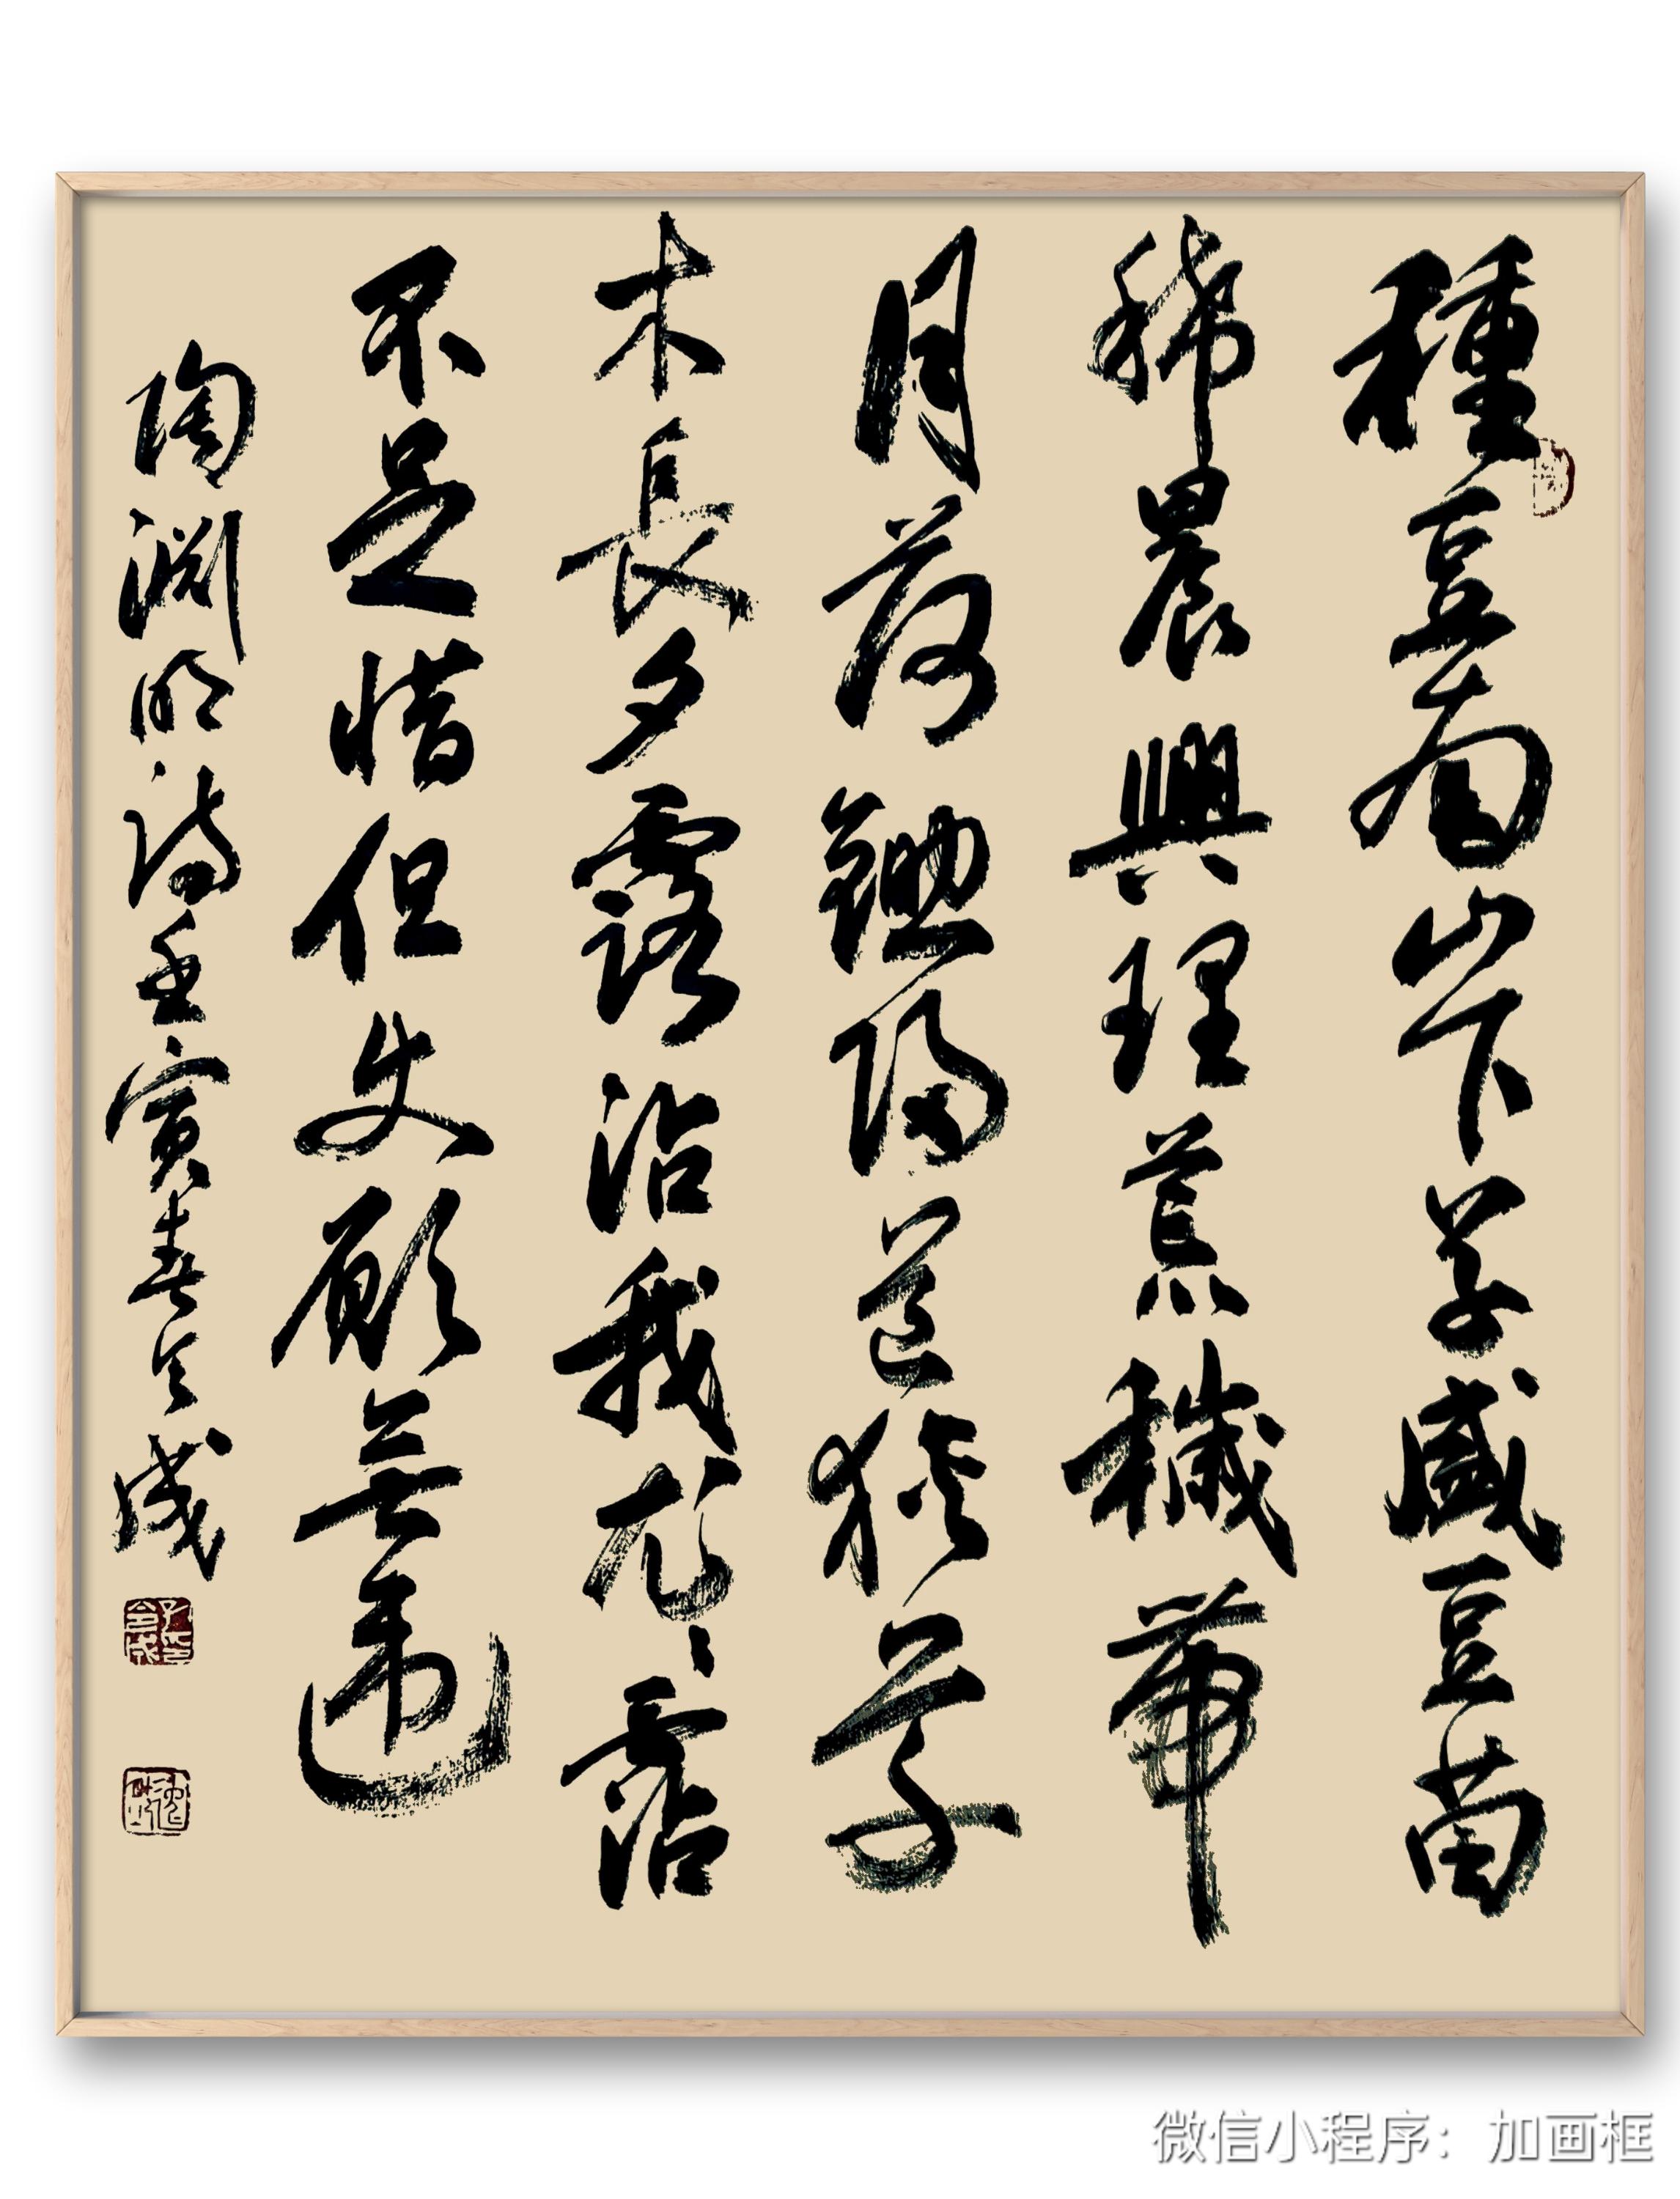 種豆南山下草盛豆苗
稀晨興理荒穢帶
月荷鋤歸道狹草
木長夕露沾我衣〻霑
不足惜但使願無違
陶淵明詩壬寅春令成
微信小程序：加画框